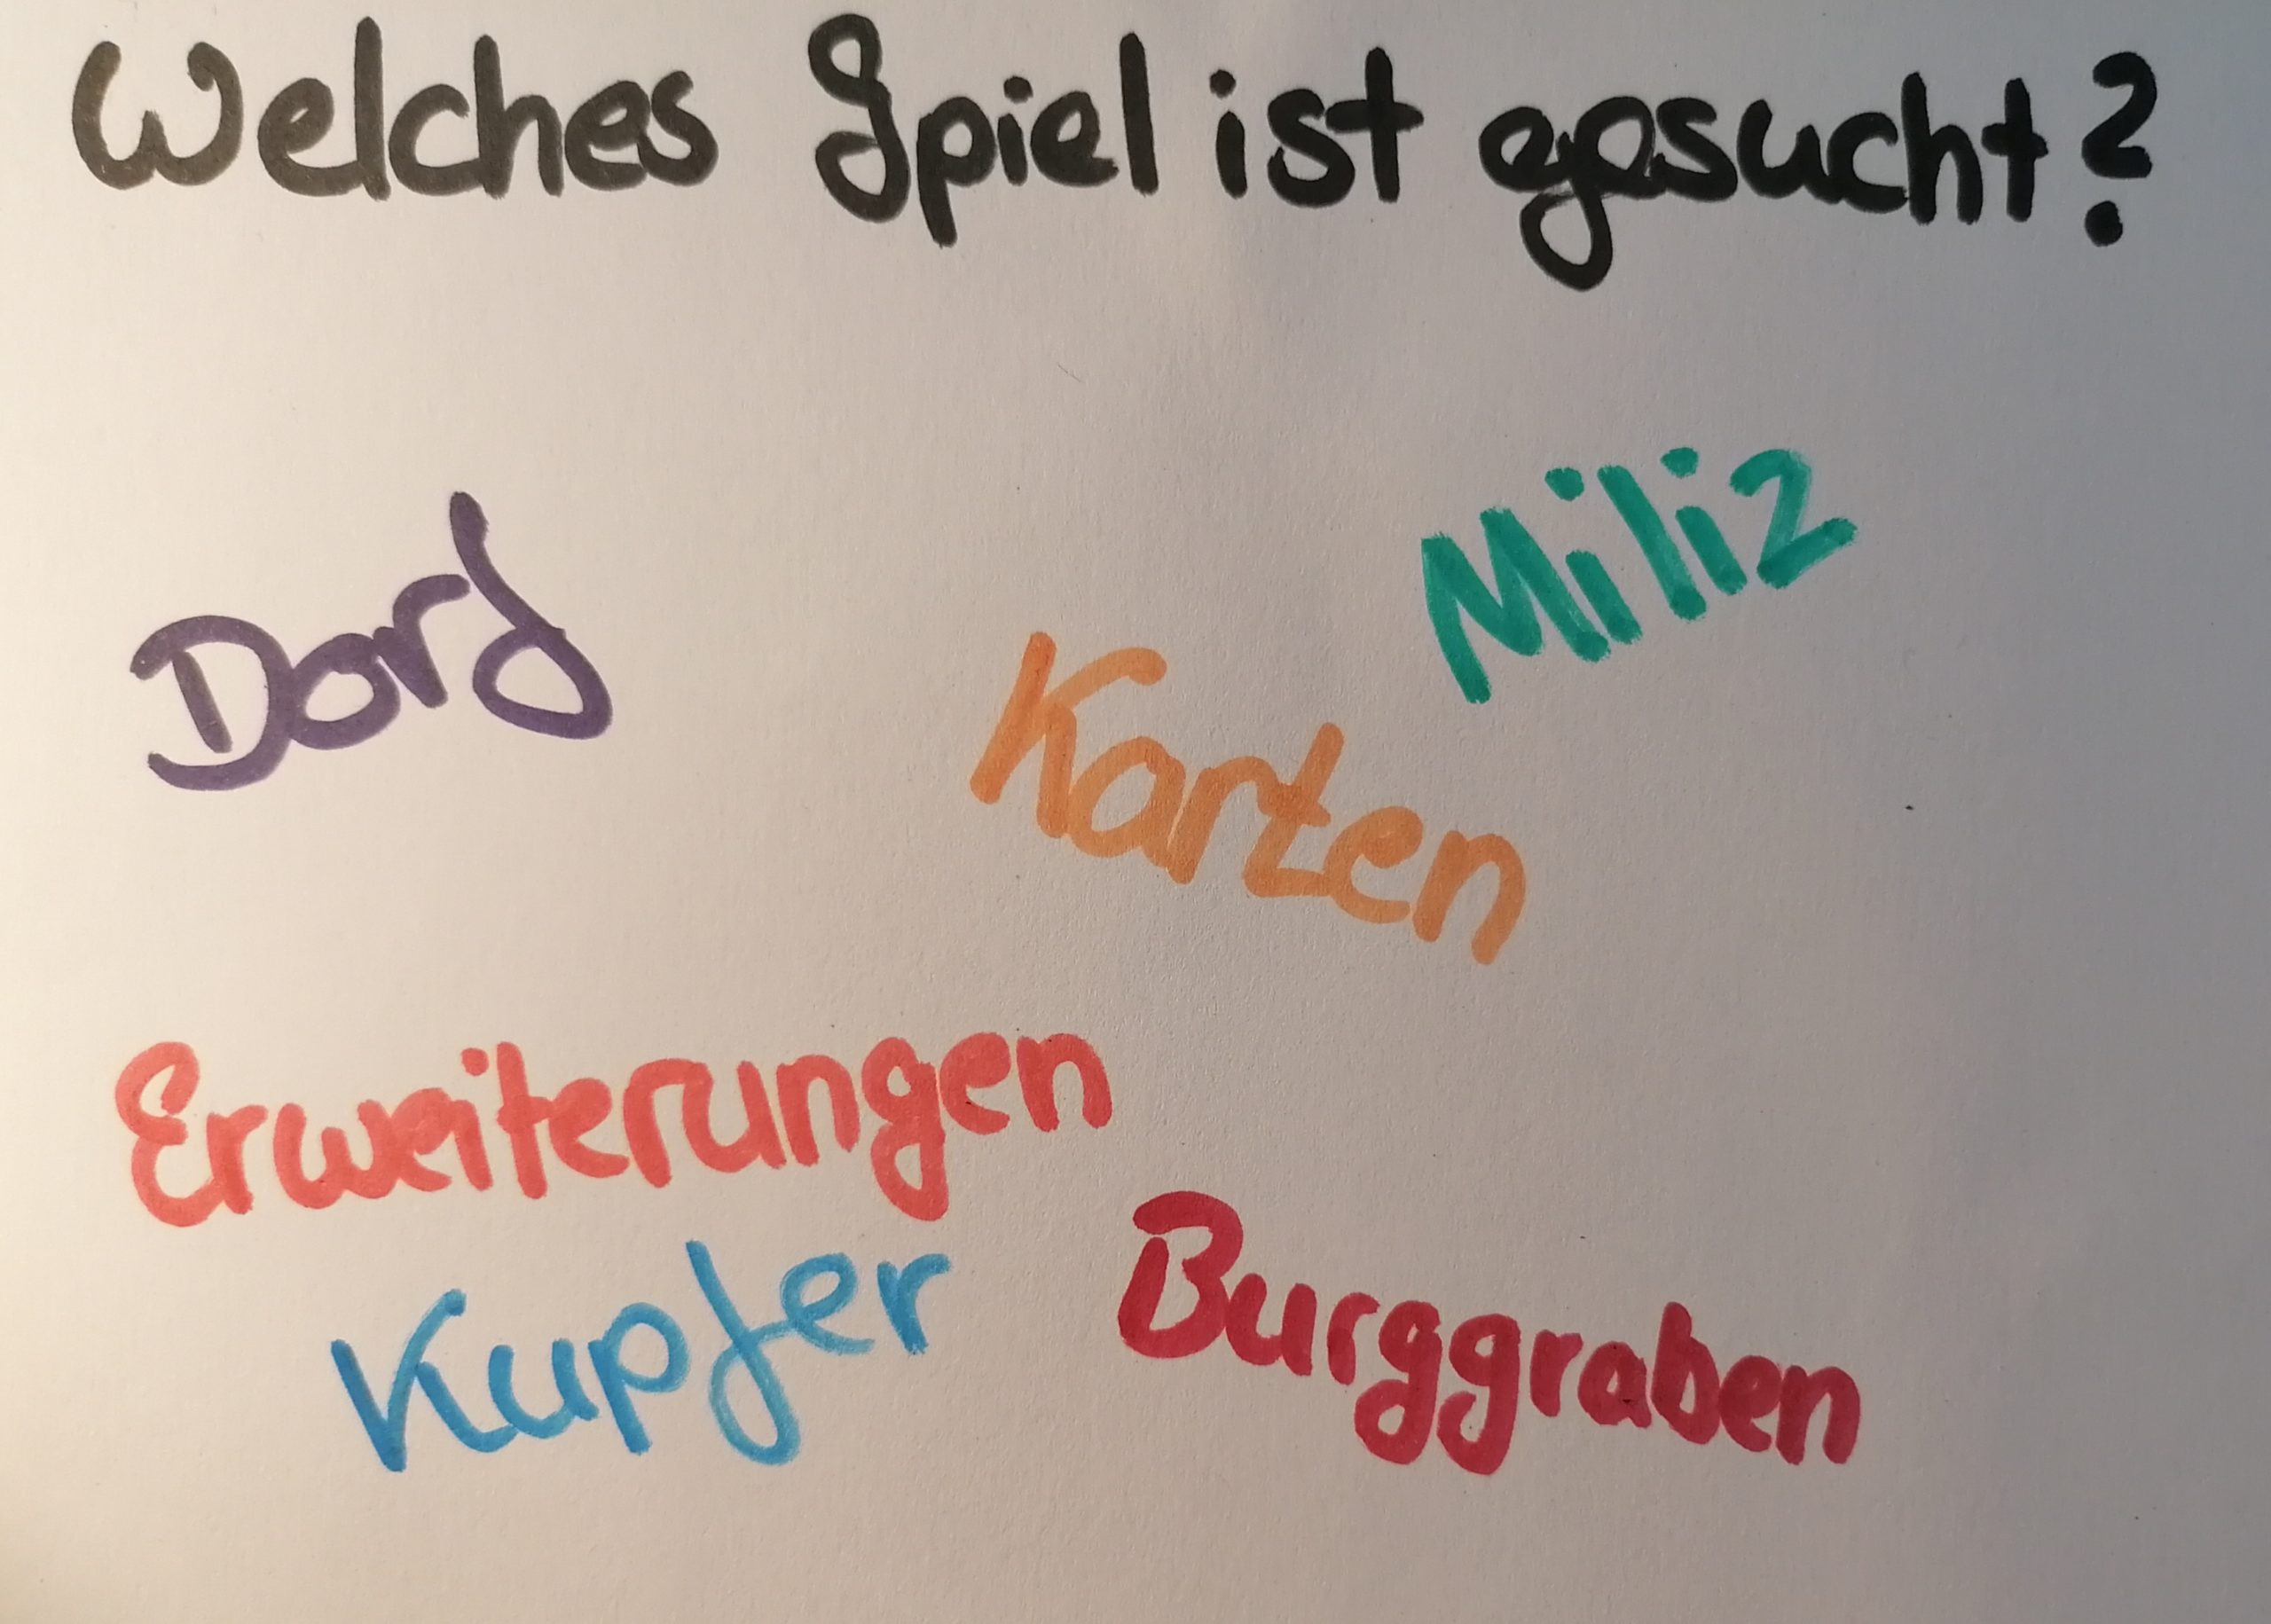 Welches Spiel ist gesucht?
Miliz
Dorf
Karten
Erweiterungen
Kupfer
Burggraben